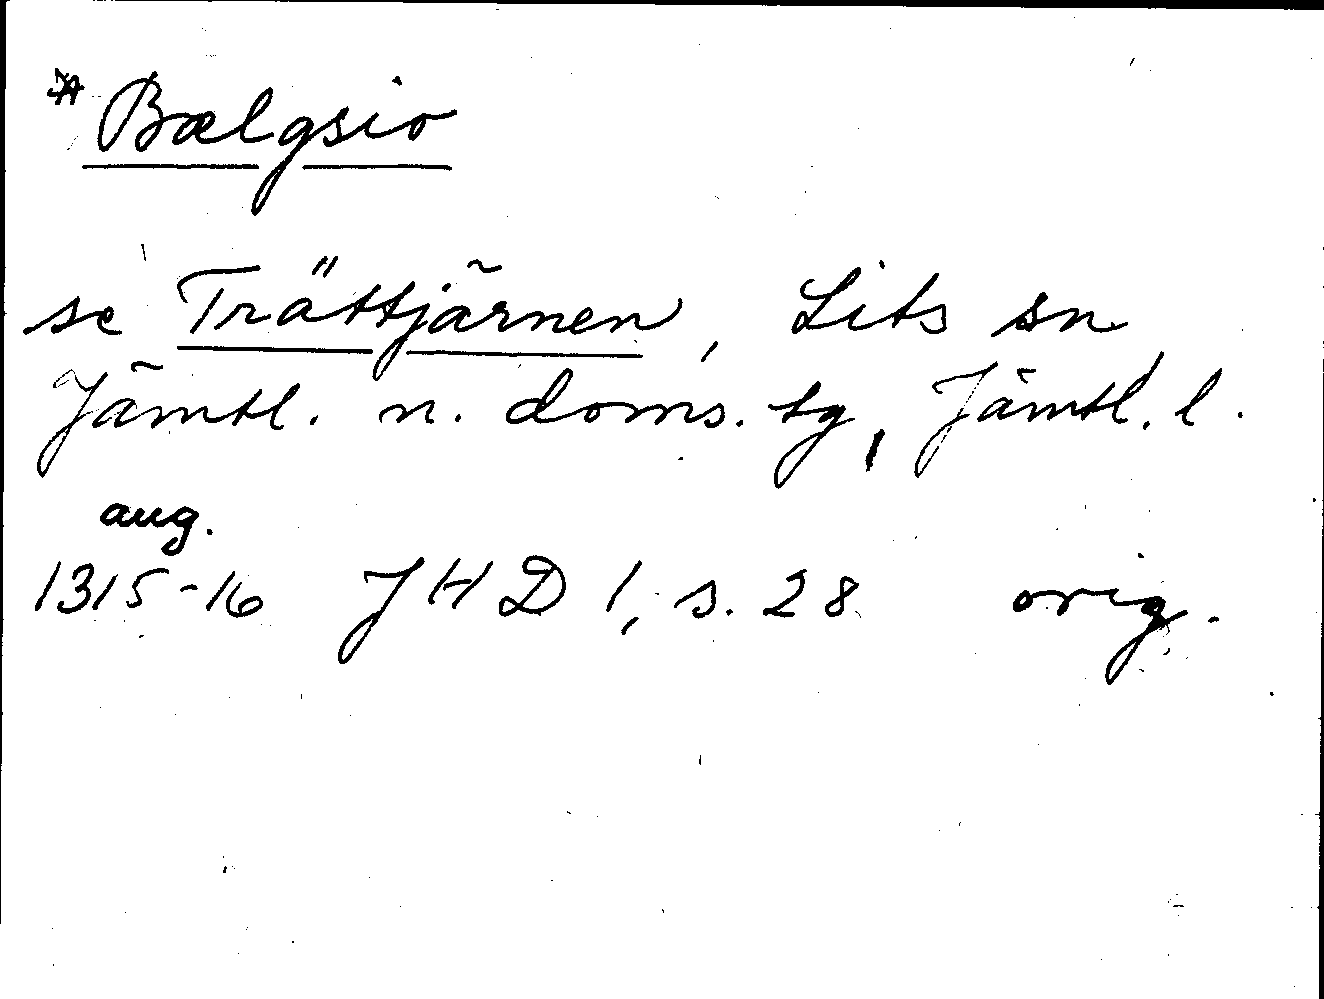 * Bælgsio
se Trättjärnen, Lits sn
Jämtl. n. doms. tg, Jämtl. l.
aug.
1315-16 JHD 1, s. 28 orig.